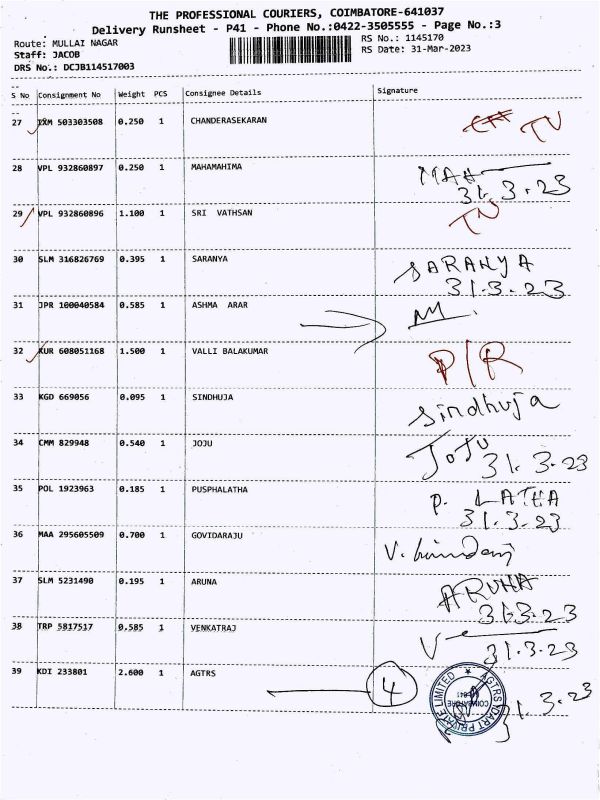 THE PROFESSIONAL COURIERS, COIMBATORE-641037
Delivery Runsheet - P41 - Phone No.:0422-3505555 - Page No.:3
Route: MULLAI NAGAR RS No.: 1145170
Staff: JACOB RS Date: 31-Mar-2023
DRS No.: DCJB114517003
S No Consignment No Weight PCS Consignee Details Signature
27 IXM 503303508 0.250 1 CHANDERASEKARAN TN
28 VPL 932860897 0.250 1 MAHAMAHIMA MAH
31.3.23
29 VPL 932860896 1.100 1 SRI VATHSAN TN
30 SLM 316826769 0.395 1 SARANYA SARANYA
31.3.23
31 JPR 100040584 0.585 1 ASHMA ARAR
32 KUR 608051168 1.500 1 VALLI BALAKUMAR P/R
33 KGD 669056 0.095 1 SINDHUJA Sindhuja
34 CMM 829948 0.540 1 JOJU JOJU 31.3.23
35 POL 1923963 0.185 1 PUSPHALATHA P. LATHA
31.3.23
36 MAA 295605509 0.700 1 GOVIDARAJU V.
37 SLM 5231490 0.195 1 ARUNA ARUNA
31.3.23
38 TRP 5817517 0.585 1 VENKATRAJ V
31.3.23
39 KDI 233801 2.600 1 AGTRS 4 31.3.23
AGTRS DART PRIVATE LIMITED
COIMBATORE